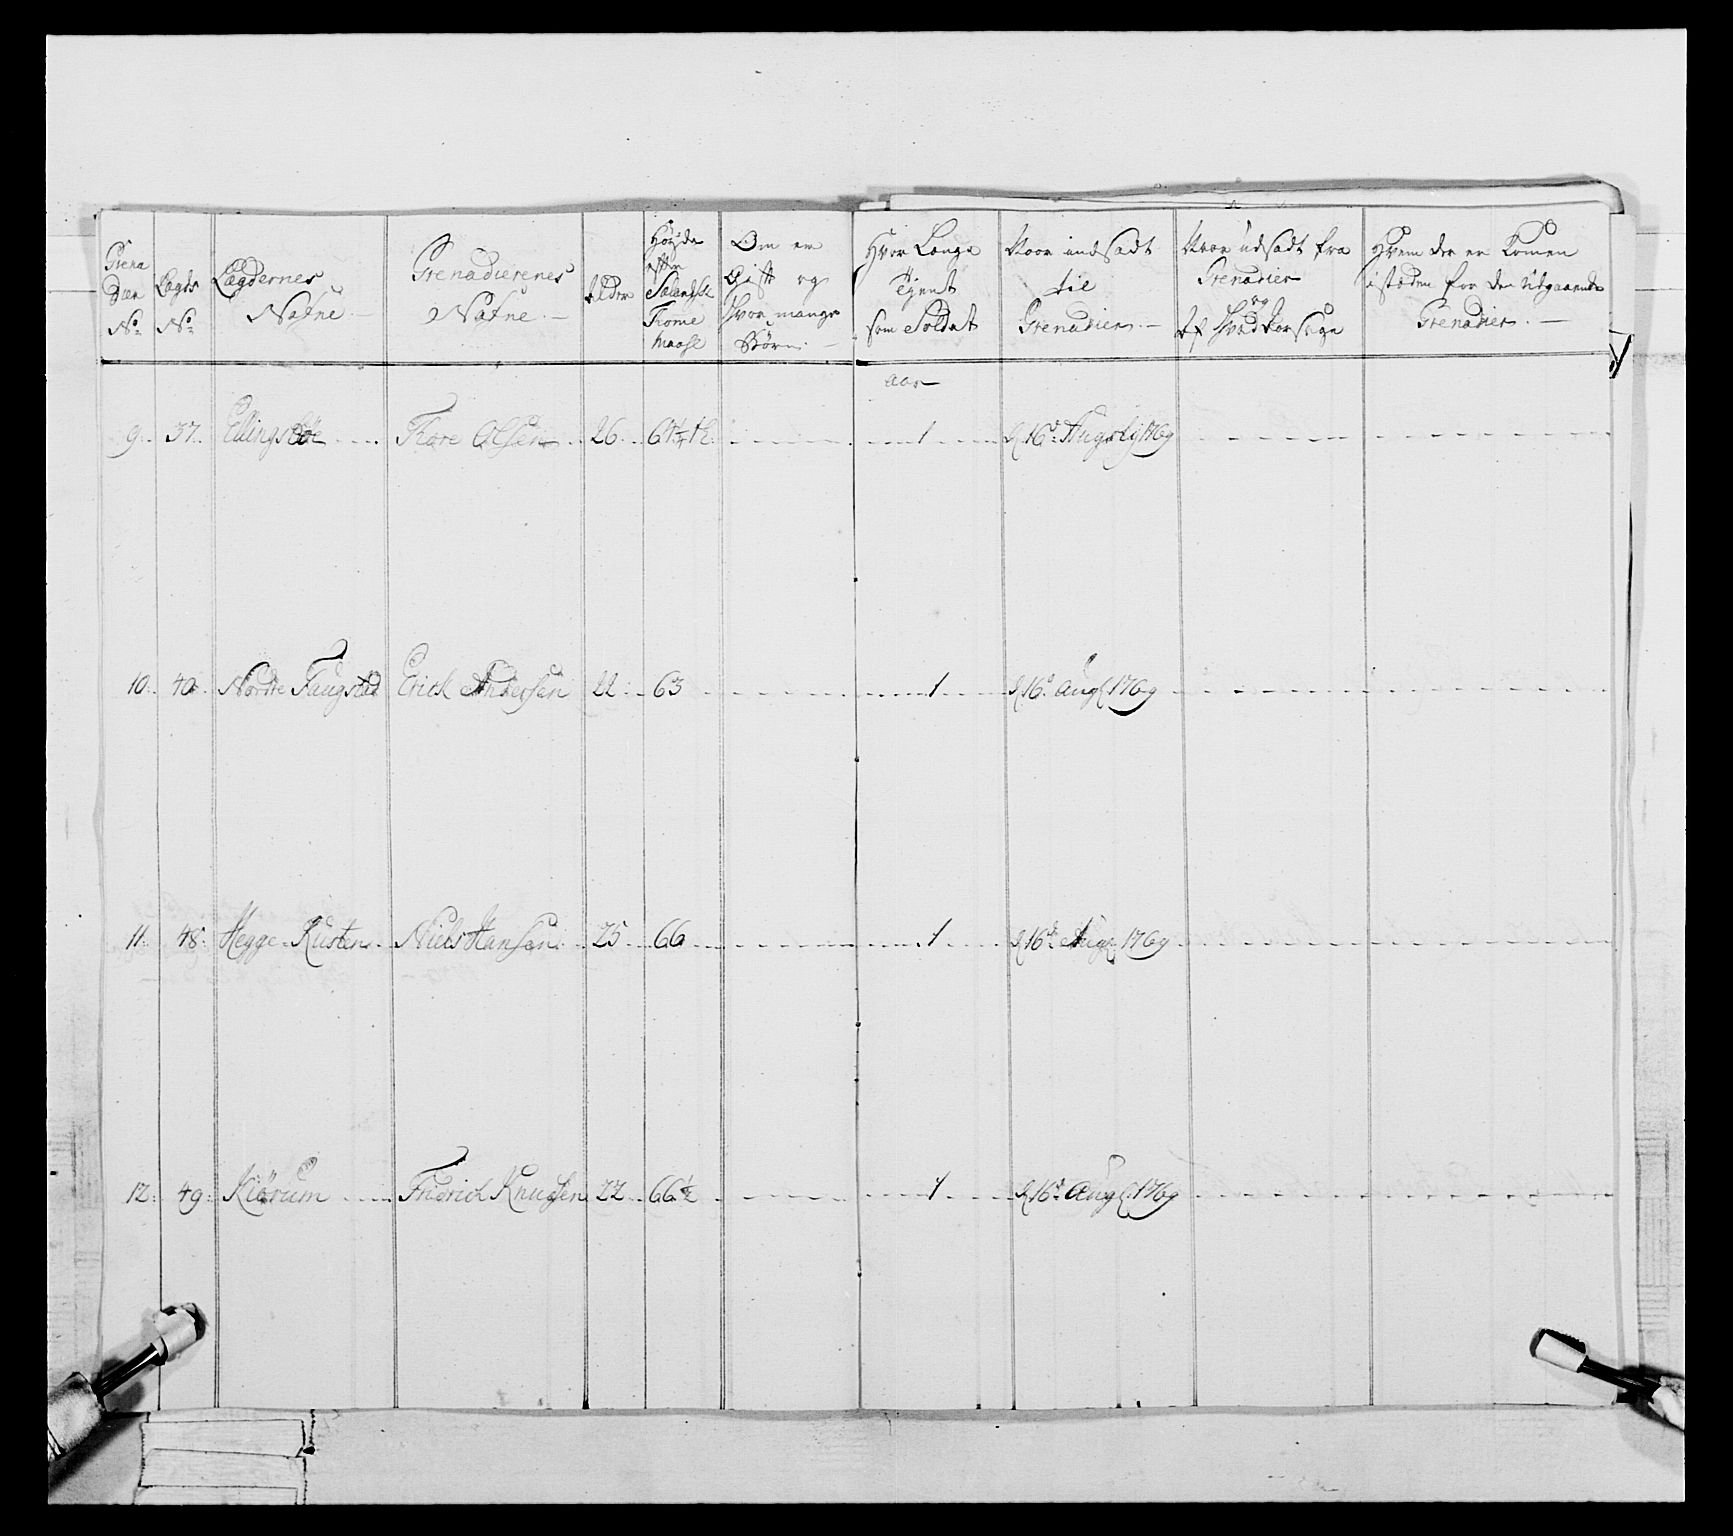 Grena
dær
No
Legds
No
Lægdernes
Nafne.
Grenadierenes
Nafne.
Alder
Høyde
efter
Sælandske
Tomme
Maase
Om er
Gift og
hvor mange
Børn.
Hvor Længe
Tient
som Soldat
Naar indsadt
til
Grenadier.
Naar udsadt fra
Grenadier
og
af Hvad Aarsage
Hvem der er komen
i stæden for den udgaaende
Grenadier.
aar
9. 37. Ellingsbøe Tore Olsen 26. 1 d 16d Augstÿ 1769
10. 40. Nordre Faugstad Erick Andersen 22 63 1 d 16d Aug 1769
11. 48. Hegge Kusten Niels Hansen 25 66 1 d 16d Aug 1769
12. 49. Kiørum Fridrich Knudsen 22 66½ 1 d 16d Aug 1769